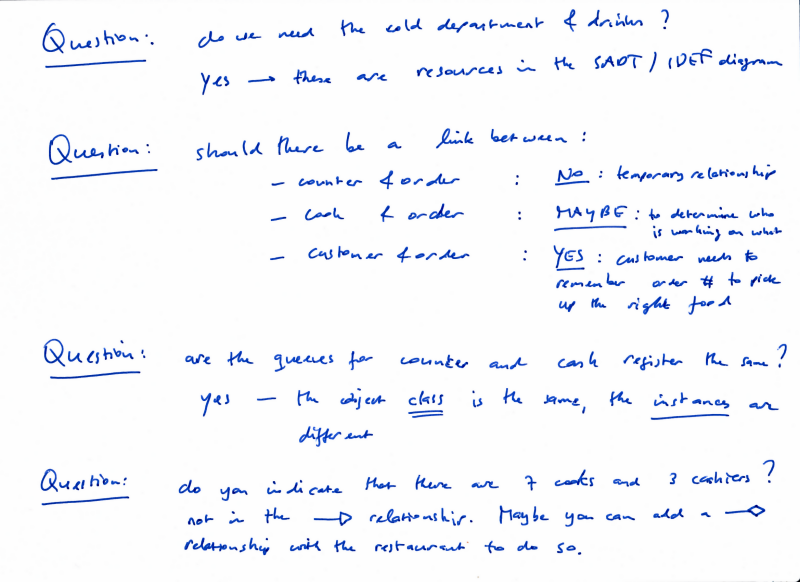 Question: do we need the cold department & drinks ?
Yes → these are resources in the SADT / IDEF diagram
Question: should there be a link between :
– counter & order : No : temporary relationship
– cook & order : MAYBE : to determine who
is working on what
– customer & order : YES : customer needs to
remember order # to pick
up the right food
Question: are the queues for counter and cash register the same ?
Yes – the object class is the same, the instances are
different
Question: do you indicate that there are 7 cooks and 3 cashiers ?
not in the —▷ relationship. Maybe you can add a —◇
relationship with the restaurant to do so.